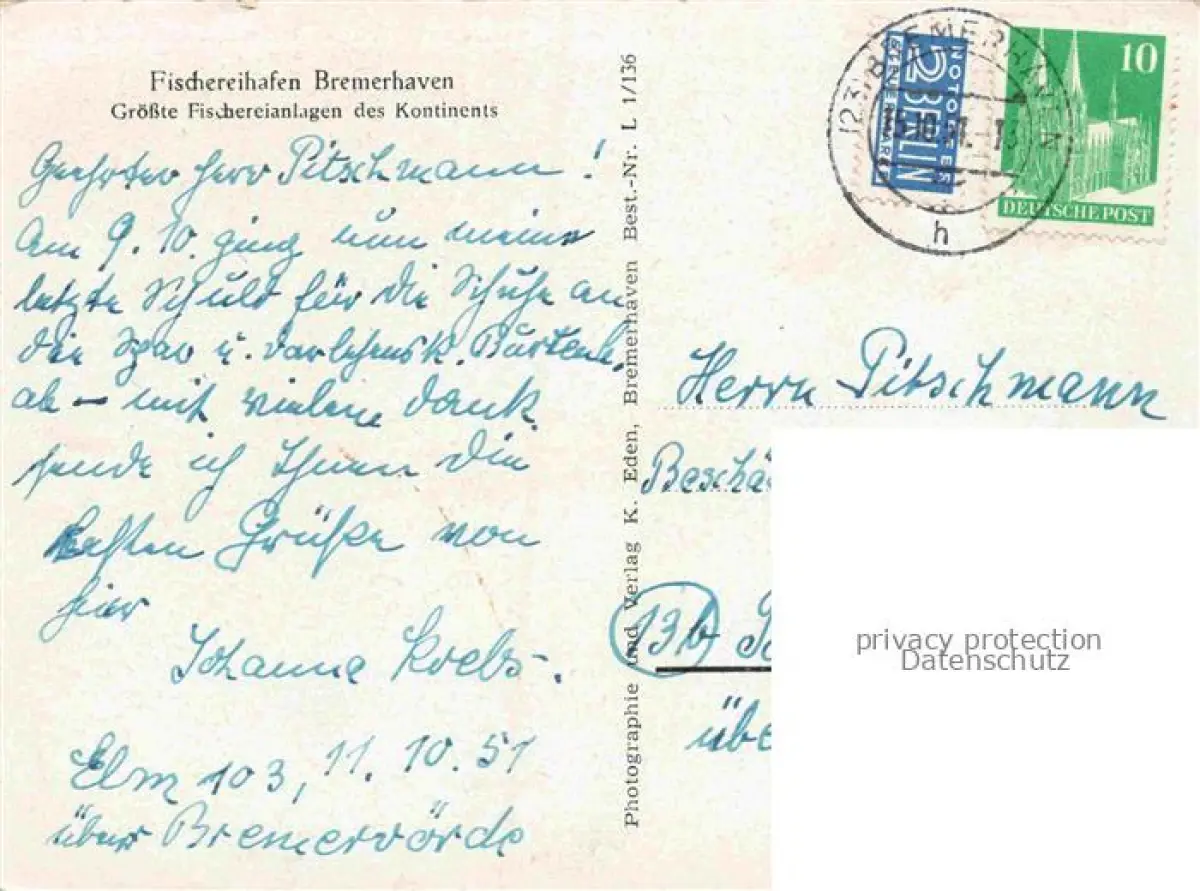 Fischereihafen Bremerhaven
Größte Fischereianlagen des Kontinents
Geehrter Herr Pitschmann!
Am 9. 10. ging nun meine
letzte Schuld für die Schuhe an
die Spar u. Darlehensk.
ab – mit vielem Dank
sende ich Ihnen die
besten Grüße von
hier
Johanne Krebs.
Elm 103, 11. 10. 51
über Bremervörde
Photographie und Verlag K. Eden, Bremerhaven Best.-Nr. L 1/136
NOTOPFER
2 BERLIN
STEUERMARKE
10
DEUTSCHE POST
(23) BREMERHAVEN
15.10.51
h
Herrn Pitschmann
Beschä
13b
übe
privacy protection
Datenschutz